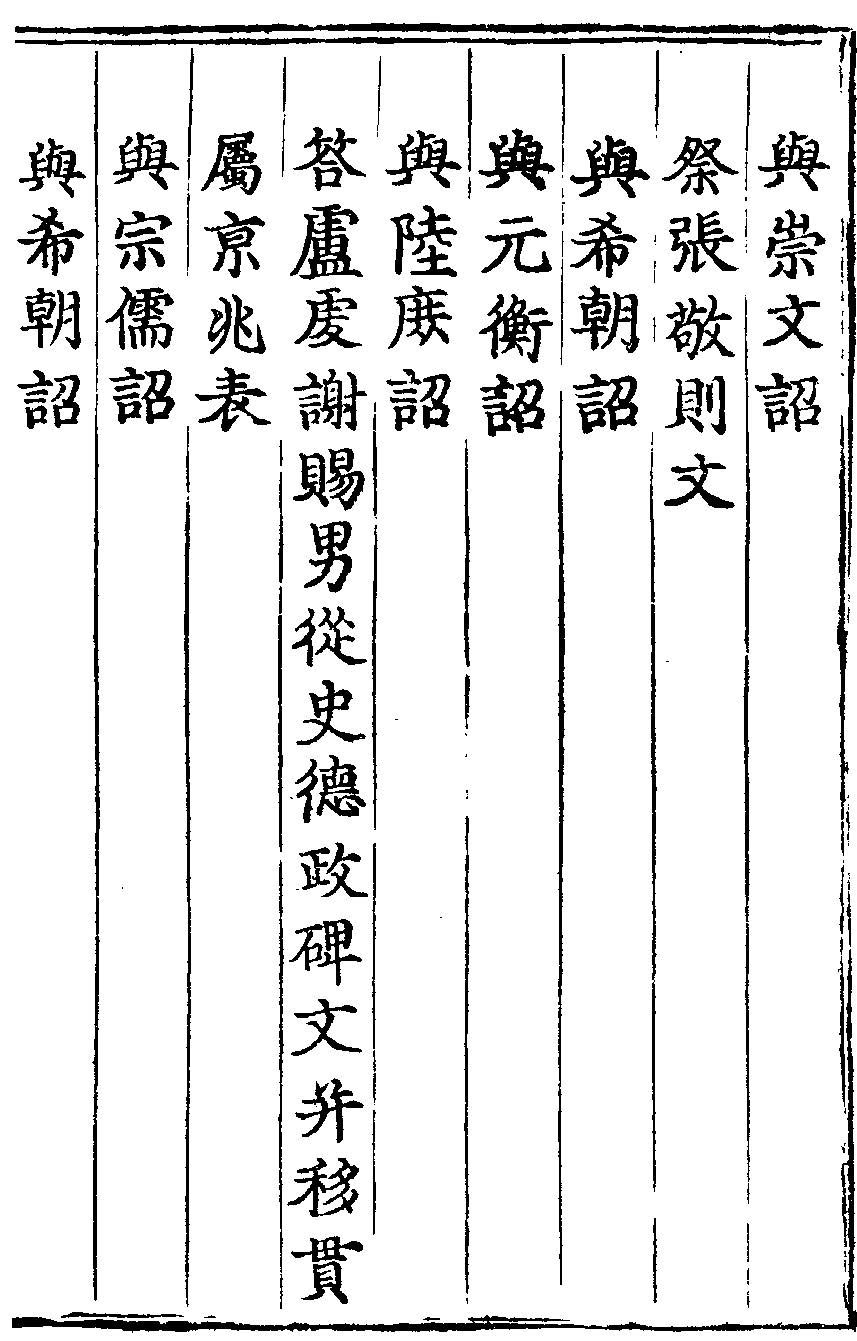 與崇文詔
祭張敬則文
與希朝詔
與元衡詔
與陸庶詔
答盧虔謝賜男從史德政碑文并移貫
屬京兆表
與宗儒詔
與希朝詔